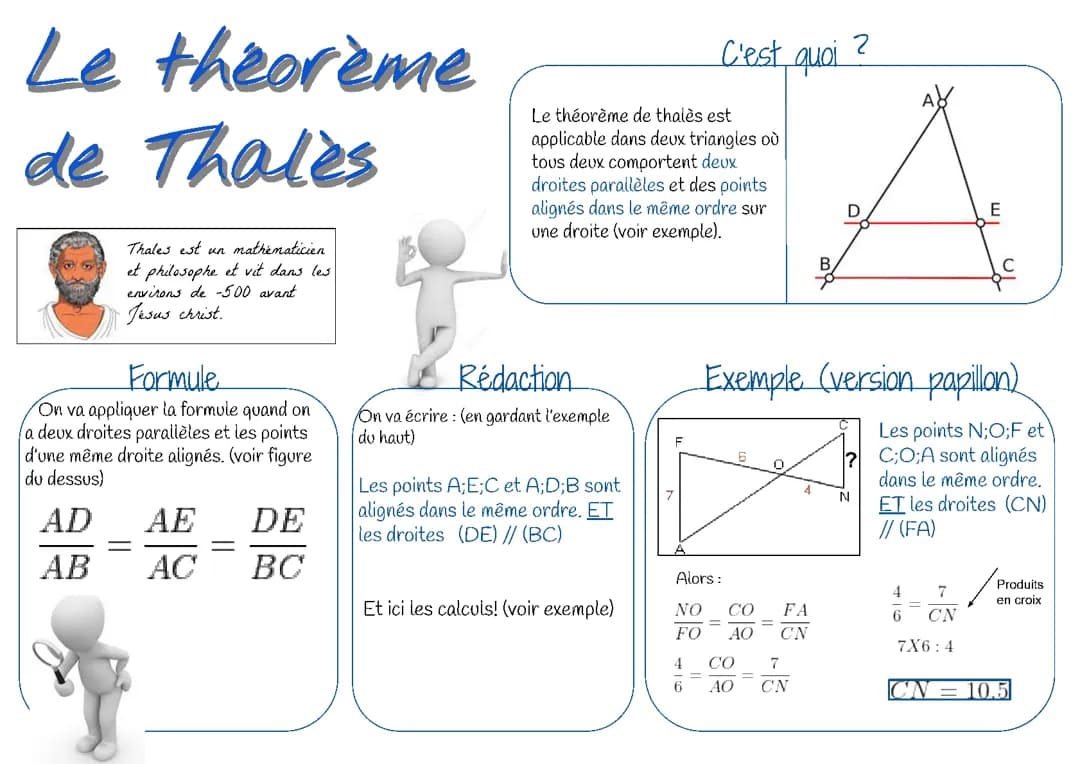 Le théorème
de Thalès
Thales est un mathématicien
et philosophe et vit dans les
environs de -500 avant
Jésus christ.
C'est quoi ?
Le théorème de thalès est
applicable dans deux triangles où
tous deux comportent deux
droites parallèles et des points
alignés dans le même ordre sur
une droite (voir exemple).
A
D
E
B
C
Formule
On va appliquer la formule quand on
a deux droites parallèles et les points
d'une même droite alignés. (voir figure
du dessus)
AD/AB = AE/AC = DE/BC
Rédaction
On va écrire : (en gardant l'exemple
du haut)
Les points A;E;C et A;D;B sont
alignés dans le même ordre. ET
les droites (DE) // (BC)
Et ici les calculs! (voir exemple)
Exemple (version papillon)
C
F
6
O
?
7
4
N
A
Les points N;O;F et
C;O;A sont alignés
dans le même ordre.
ET les droites (CN)
// (FA)
Alors :
NO/FO = CO/AO = FA/CN
4/6 = CO/AO = 7/CN
4/6 = 7/CN
Produits
en croix
7X6 : 4
CN = 10.5